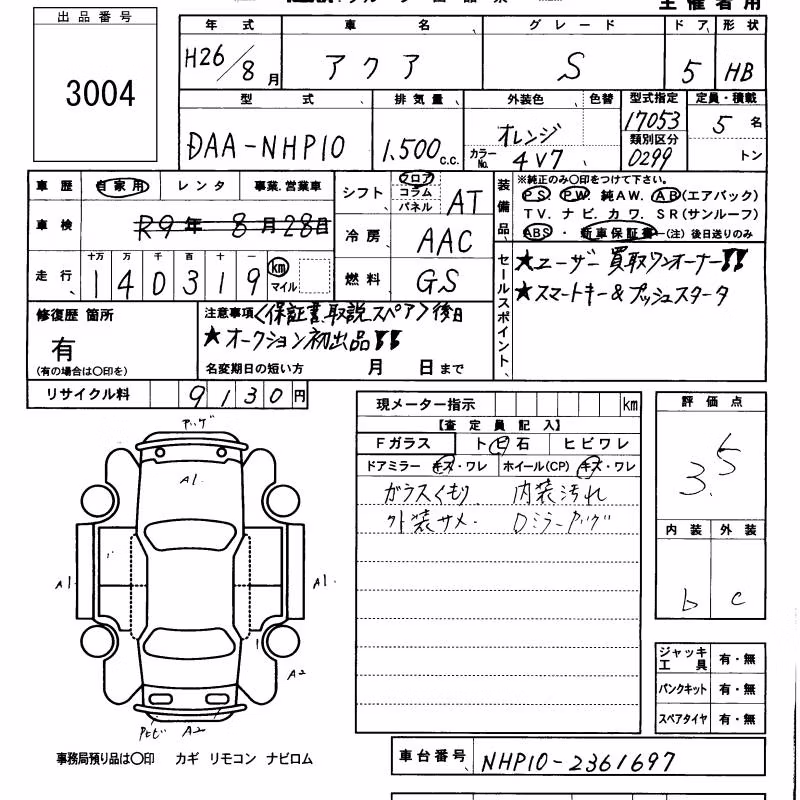 主催者用
出品番号
3004
年式 車名 グレード ドア 形状
H26/8月 アクア S 5 HB
型式 排気量 外装色 色替 型式指定 定員・積載
DAA-NHP10 1,500c.c. オレンジ 17053 5名
カラーNo. 4V7 類別区分 0299 トン
車歴 自家用 レンタ 事業.営業車
車検 R9年8月28日
走行 十万 万 千 百 十 一
140319 km マイル
シフト フロア コラム パネル AT
冷房 AAC
燃料 GS
装備品
※純正のみ〇印をつけて下さい。
PS. PW. 純AW. AB(エアバック)
TV. ナビ. カワ. SR(サンルーフ)
ABS・新車保証書―(注)後日送りのみ
セールスポイント
★ユーザー買取ワンオーナー!!
★スマートキー&プッシュスタータ
修復歴 箇所
有
(有の場合は〇印を)
注意事項 <保証書,取説,スペア>後日
★オークション初出品!!
名変期日の短い方 月 日まで
リサイクル料 9130円
現メーター指示 km
【査定員記入】
Fガラス トビ石 ヒビワレ
ドアミラー キズ・ワレ ホイール(CP) キズ・ワレ
ガラスくもり 内装汚れ
外装サメ. Dミラーアゲ
評価点
3.5
内装 外装
b c
ジャッキ工具 有・無
パンクキット 有・無
スペアタイヤ 有・無
A1
A1 A1
A2
A2
事務局預り品は〇印 カギ リモコン ナビロム
車台番号 NHP10-2361697